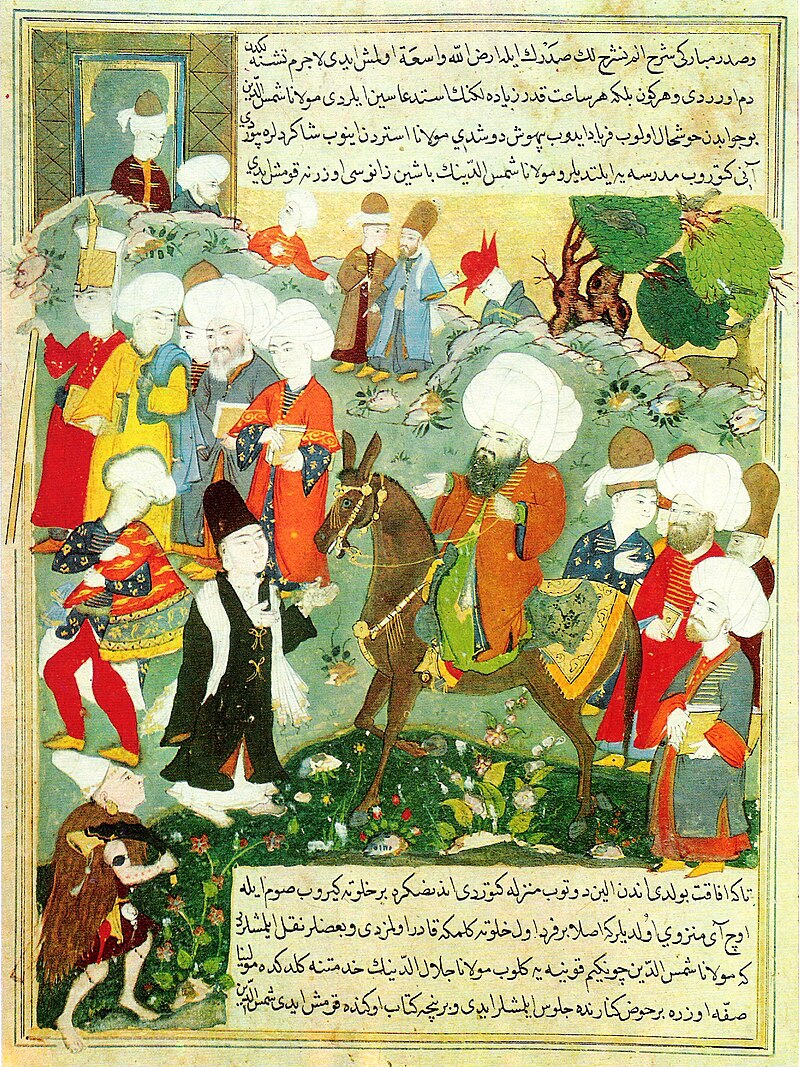 وصدر مباركى شرح الم نشرح لك صدرك ايله ارض الله واسعة اولمش ايدى لاجرم تشنه لكدن
دم اوردى و هركون بلكه هر ساعت قدر زياده لكنك استدعاسين ايلردى مولانا شمس الدين
بو جوابدن خوشحال اولوب فرياد ايدوب بيهوش دوشدى مولانا استردن اينوب شاكردلره بيوردى
آنى كتوروب مدرسه يه ايلتديلر و مولانا شمس الدينك باشين زانوسى اوزرنه قومش ايدى
تاكه افاقت بولدى اندن الين دوتوب منزله كتوردى اندن صكره بر خلوته كيروب صوم ايله
اوچ آى منزوى اولديلر كه اصلا بر فرد اول خلوته كلمكه قادر اولمزدى و بعضلر نقل ايلمشلردر
كه مولانا شمس الدين چونكيم قونيه يه كلوب مولانا جلال الدينك خدمتنه كلدكده مولانا
صفه اوزره بر حوض كنارنده جلوس ايلمشلر ايدى و بر نيچه كتاب اوكنده قومش ايدى شمس الدين